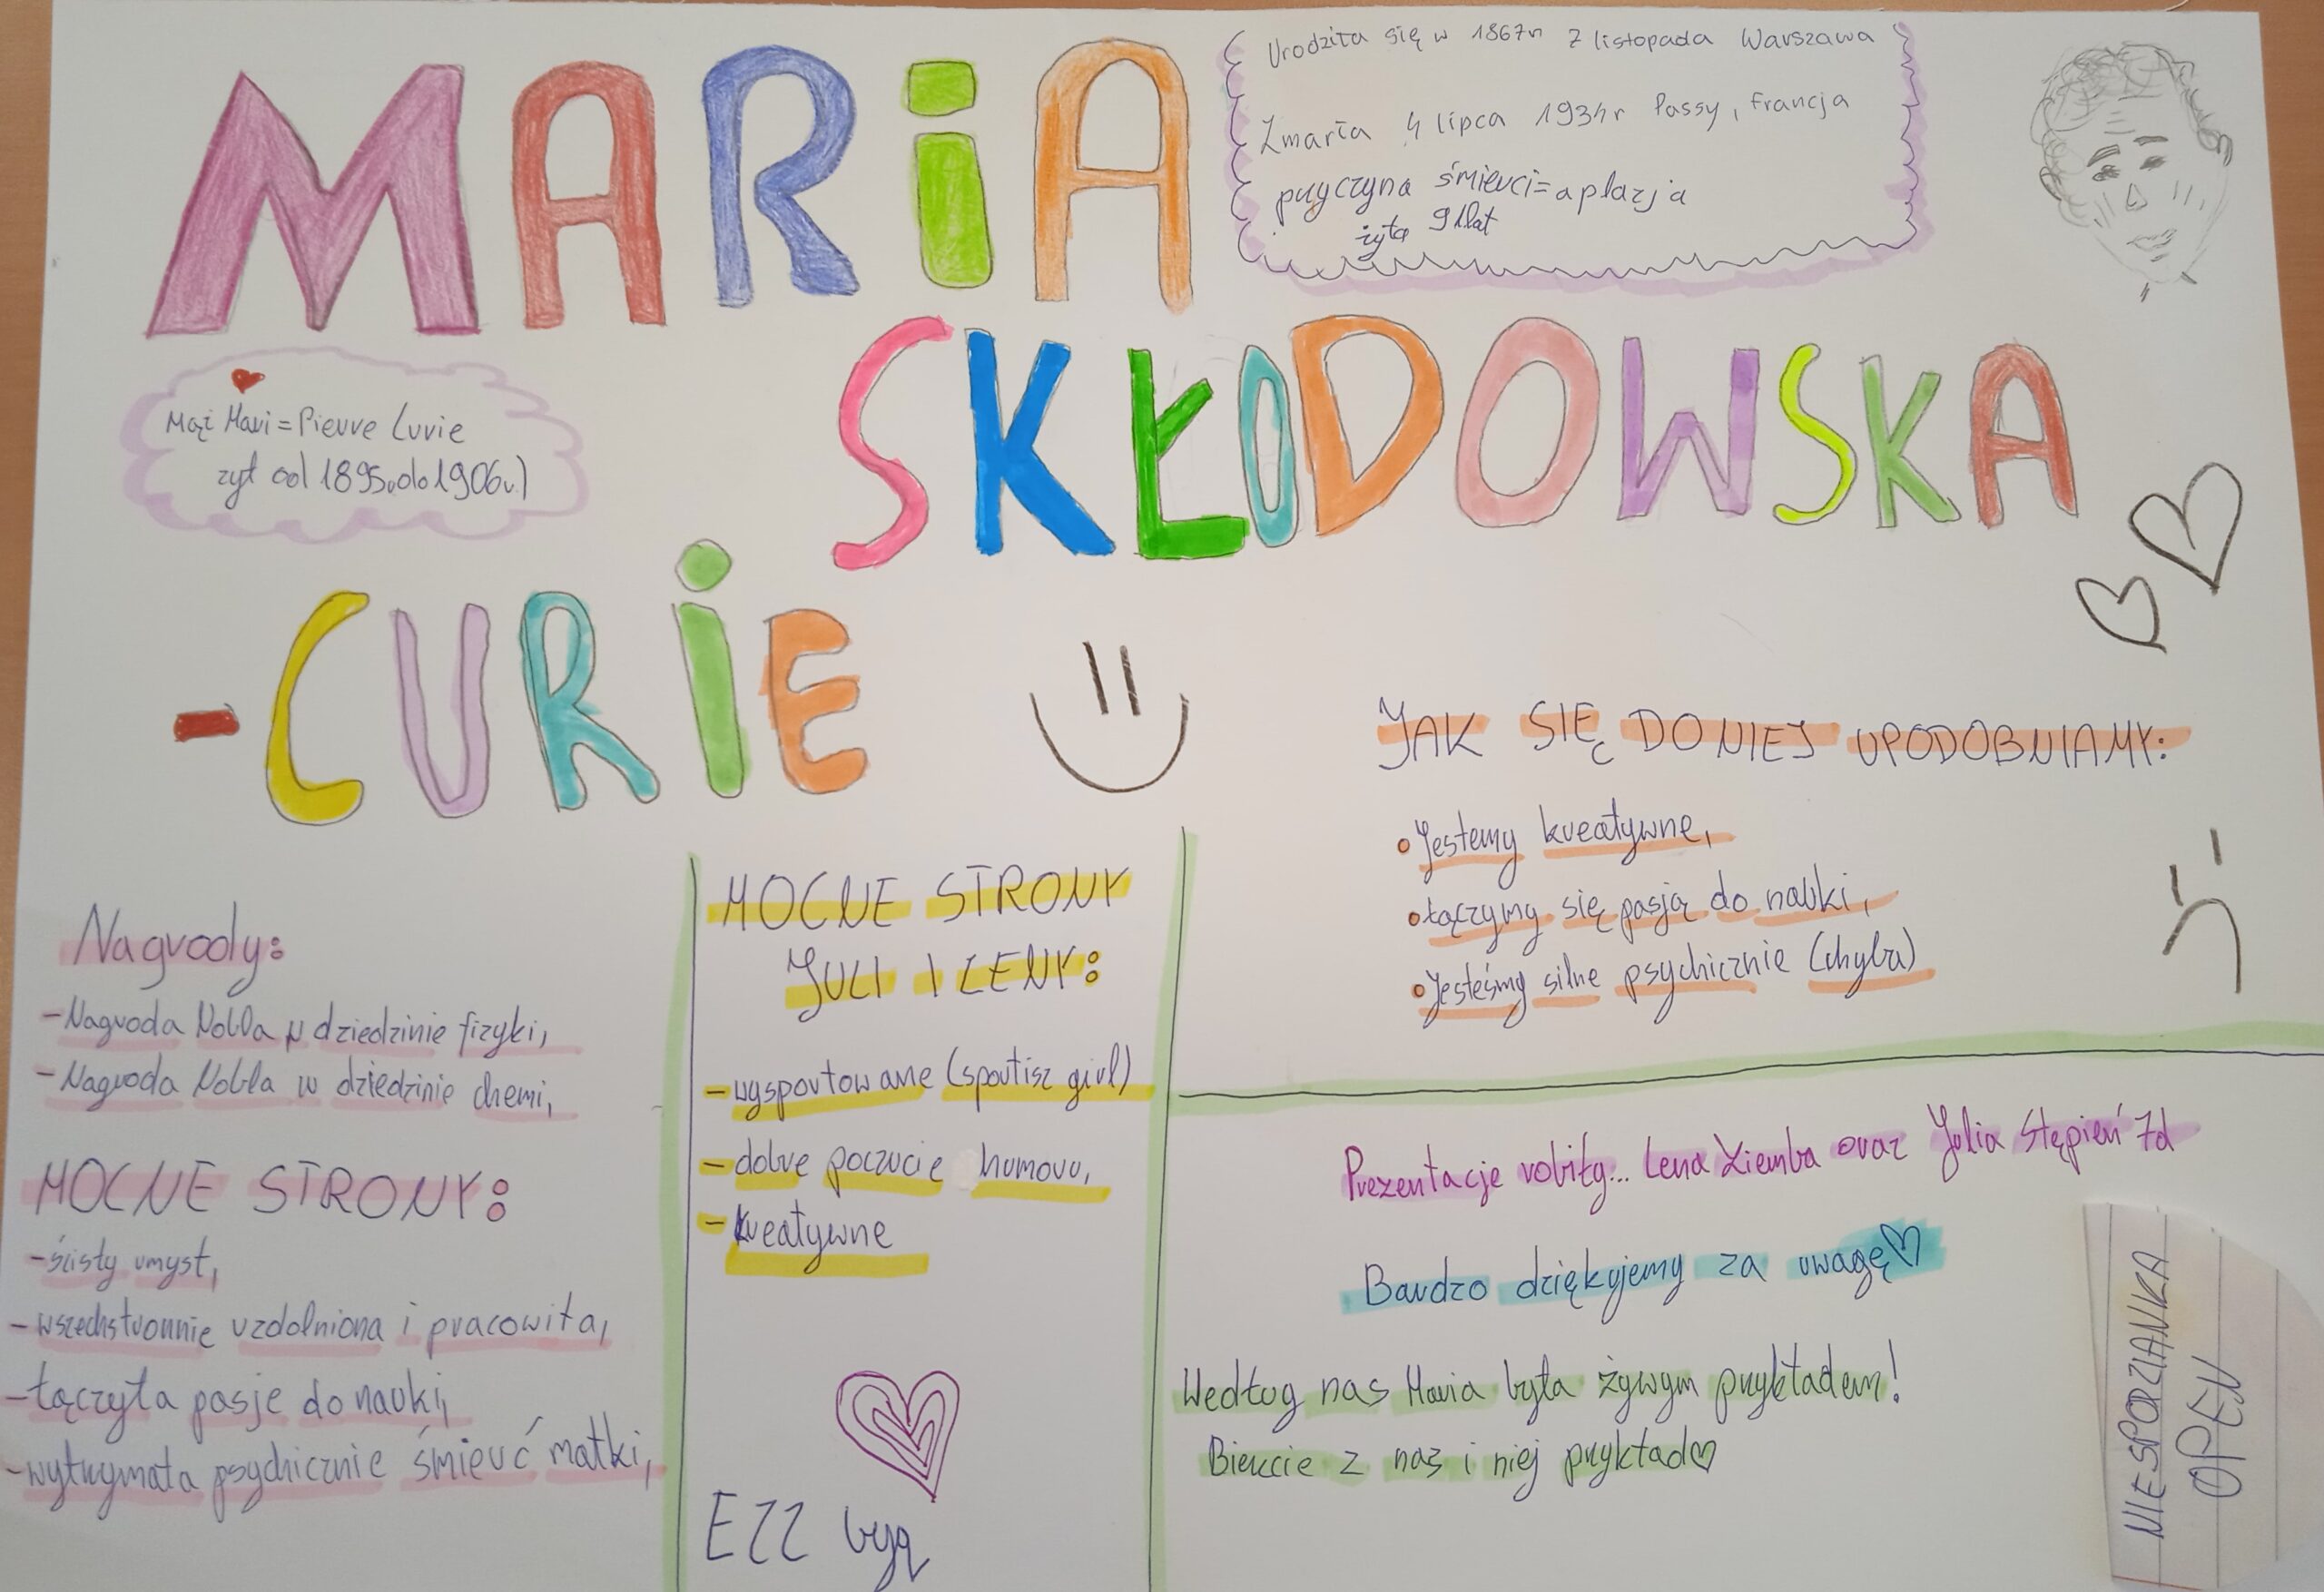 MARiA
Urodziła się w 1867r 7 listopada Warszawa
Zmarła 4 lipca 1934r Passy, Francja
przyczyna śmierci= aplazja
żyła 91lat
SKŁODOWSKA
Mąż Mari = Pierre Curie
żył od 1895.do1906r.)
-CURiE
JAK SIĘ DO NIEJ UPODOBNIAMY:
•Jestemy kreatywne,
•łączymy się pasją do nauki,
•Jesteśmy silne psychicznie (chyba)
Nagrody:
-Nagroda Nobla w dziedzinie fizyki,
-Nagroda Nobla w dziedzinie chemi,
MOCNE STRONY:
-ścisły umysł,
-wszechstronnie uzdolniona i pracowita,
-łączyła pasje do nauki,
-wytrzymała psychicznie śmierć matki,
MOCNE STRONY
JULI I LENY:
-wysportowane (sportisz girl)
-dobre poczucie humoru,
-kreatywne
EZZ
Prezentacje robiły... Lena Ziemba oraz Julia Stępień 7d
Bardzo dziękujemy za uwagę♡
Według nas Maria była żywym przykładem!
Bierzcie z nas i niej przykład♡
NIESPODZIANKA
OPEN